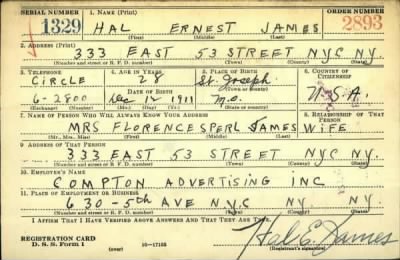 SERIAL NUMBER 1. NAME (Print) ORDER NUMBER
1329 HAL ERNEST JAMES 2893
(First) (Middle) (Last)
2. ADDRESS (Print)
333 EAST 53 STREET NYC NY.
(Number and street or R. F. D. number) (Town) (County) (State)
3. TELEPHONE 4. AGE IN YEARS 5. PLACE OF BIRTH 6. COUNTRY OF CITIZENSHIP
CIRCLE 28 St. Joseph
DATE OF BIRTH (Town or county)
6-2800 Dec 12 1911 Mo. U.S.A.
(Exchange) (Number) (Mo.) (Day) (Yr.) (State or country)
7. NAME OF PERSON WHO WILL ALWAYS KNOW YOUR ADDRESS 8. RELATIONSHIP OF THAT PERSON
MRS FLORENCE SPERL JAMES WIFE
(Mr., Mrs., Miss) (First) (Middle) (Last)
9. ADDRESS OF THAT PERSON
333 EAST 53 STREET NYC NY.
(Number and street or R. F. D. number) (Town) (County) (State)
10. EMPLOYER'S NAME
COMPTON ADVERTISING INC
11. PLACE OF EMPLOYMENT OR BUSINESS
630-5th AVE N.Y.C NY NY.
(Number and street or R. F. D. number) (Town) (County) (State)
I AFFIRM THAT I HAVE VERIFIED ABOVE ANSWERS AND THAT THEY ARE TRUE.
REGISTRATION CARD
D. S. S. Form 1 (over) 16-17105 Hal E. James
(Registrant's signature)